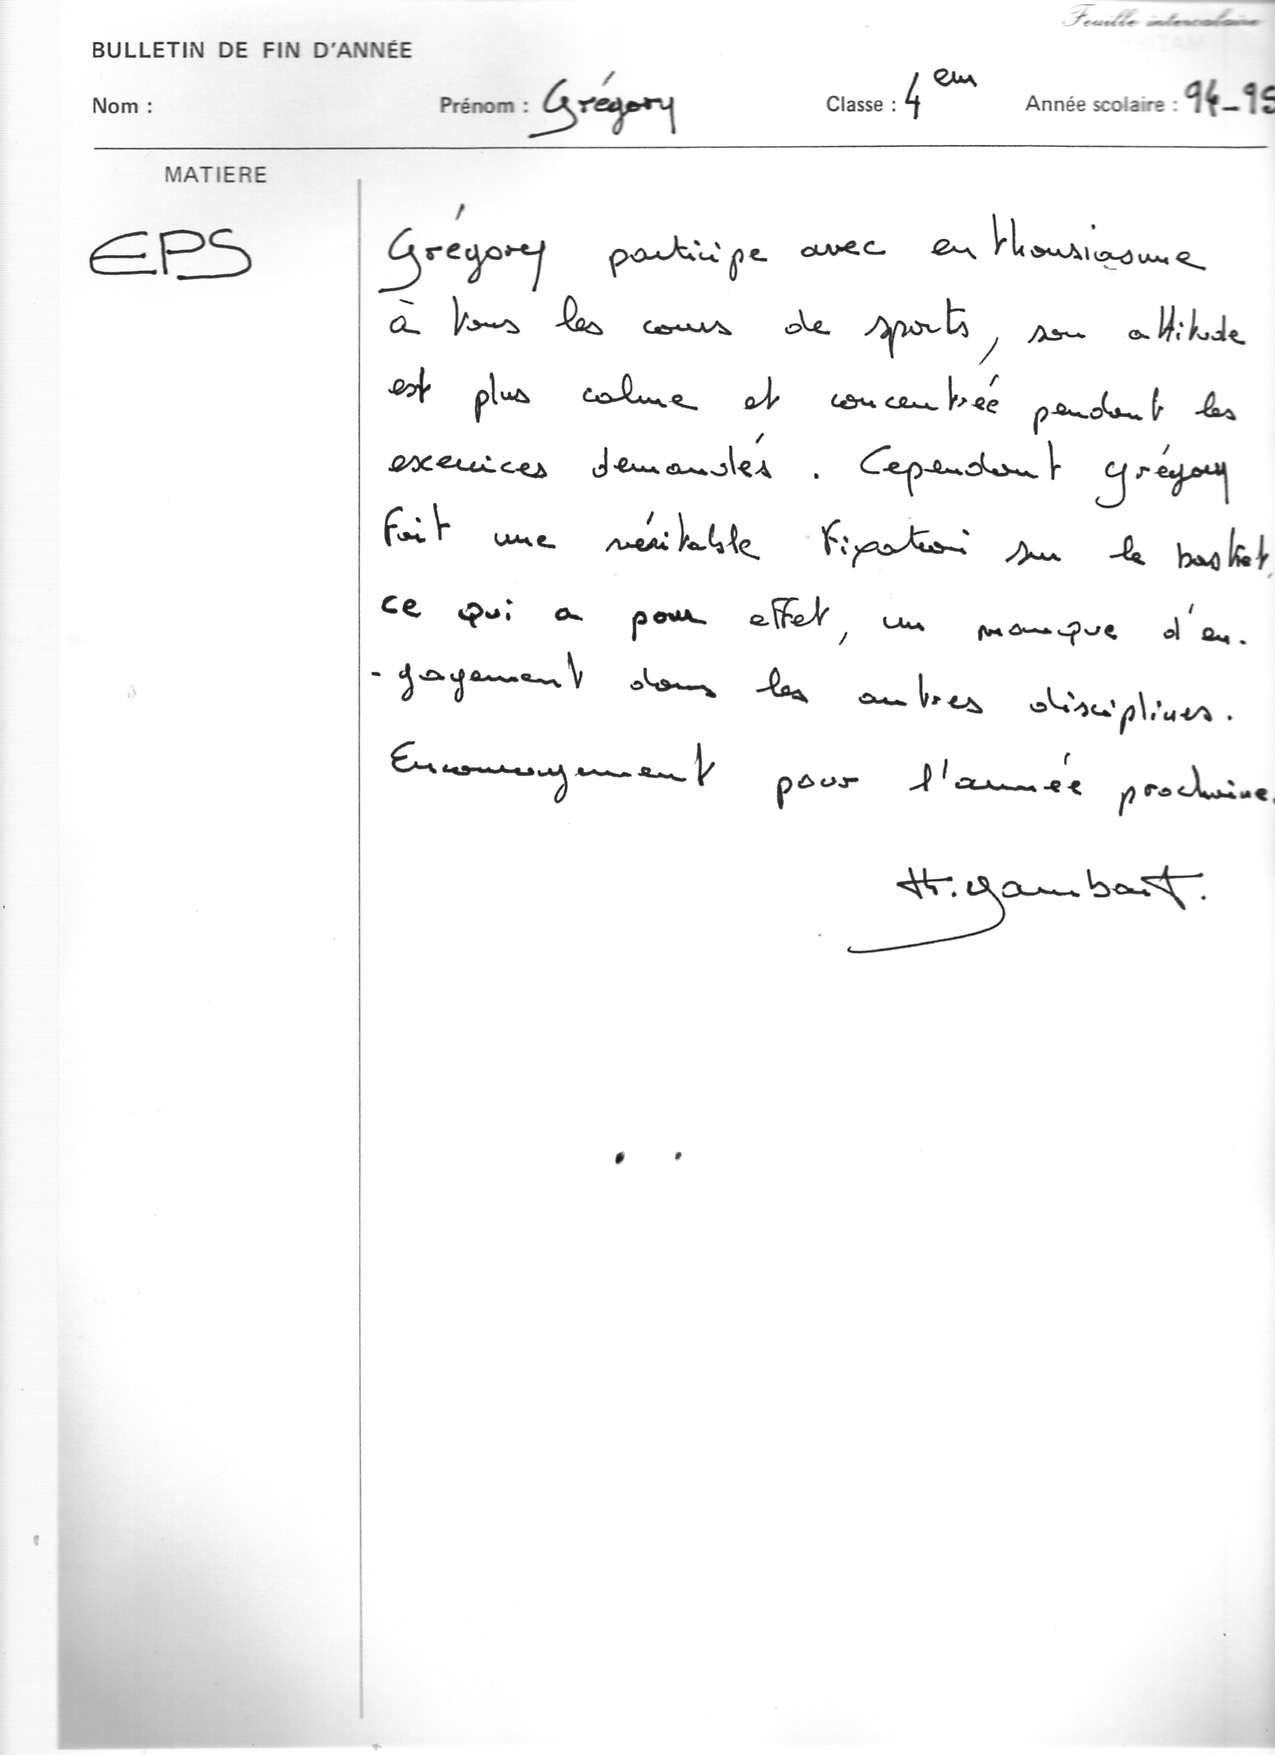 Feuille intercalaire
BULLETIN DE FIN D'ANNÉE
Nom : Prénom : Grégory Classe : 4em Année scolaire : 94-95
MATIERE
EPS
Grégory participe avec enthousiasme
à tous les cours de sports, son attitude
est plus calme et concentrée pendant les
exercices demandés. Cependant Grégory
fait une véritable fixation sur le basket,
ce qui a pour effet, un manque d'en-
-gagement dans les autres disciplines.
Encouragement pour l'année prochaine.
H. Gambart.